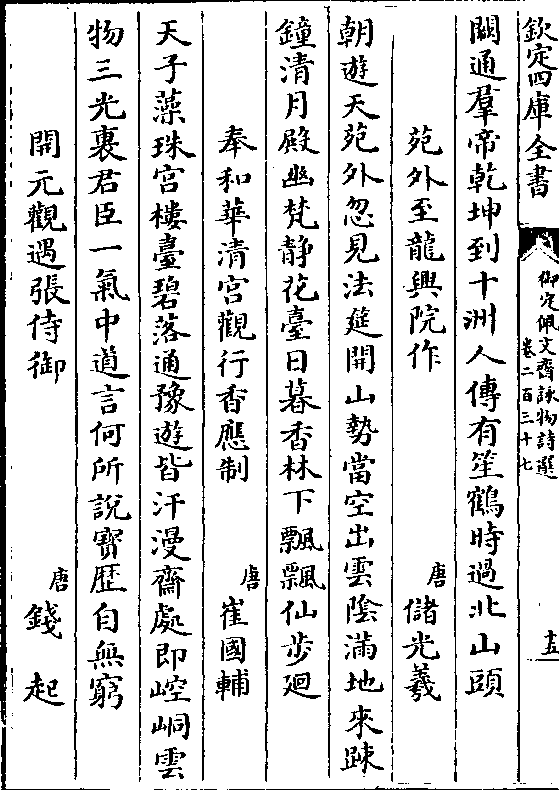 欽定四庫全書
御定佩文齋詠物詩選
卷二百三十七
十五
闕通羣帝乾坤到十洲人傳有笙鶴時過北山頭
苑外至龍興院作 唐 儲光羲
朝遊天苑外忽見法筵開山勢當空出雲陰滿地來疎
鐘清月殿幽梵静花臺日暮香林下飄飄仙步廻
奉和華清宮觀行香應制 唐 崔國輔
天子藻珠宮樓臺碧落通豫遊皆汗漫齋處即崆峒雲
物三光裏君臣一氣中道言何所說寳歴自無窮
開元觀遇張侍御 唐 錢起